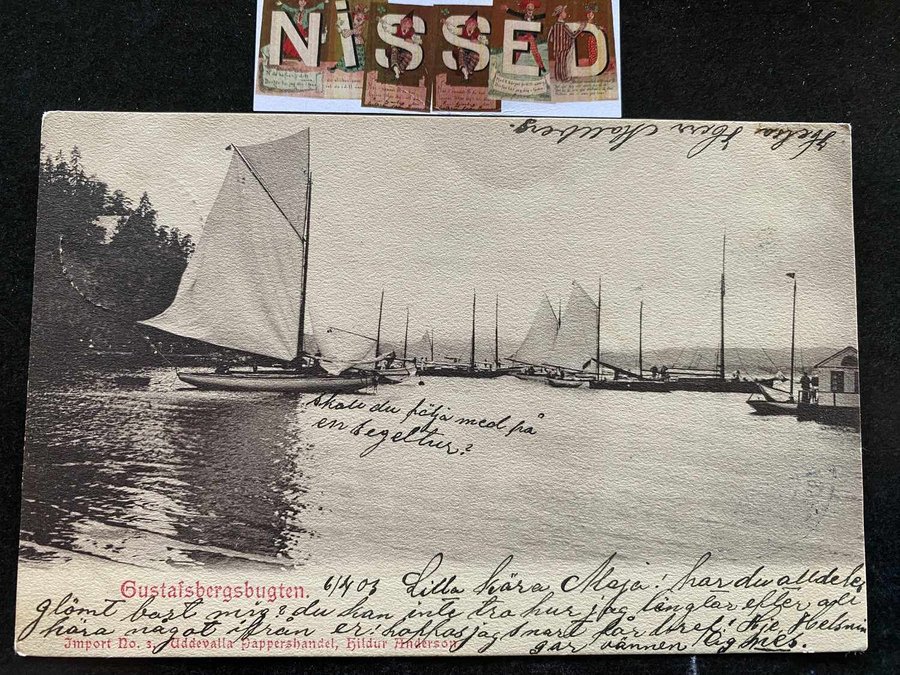 NISSED
Helsa Herr Malmberg.
Skall du följa med på
en Segeltur?
Gustafsbergsbugten. 6/4 03 Lilla kära Maja! har du alldeles
glömt bort mig? du kan inte tro hur jag längtar efter att
höra något från er, hoppas jag snart får bref!
gar vännen
Import No. 3, Uddevalla Pappershandel, Hildur Anderson.